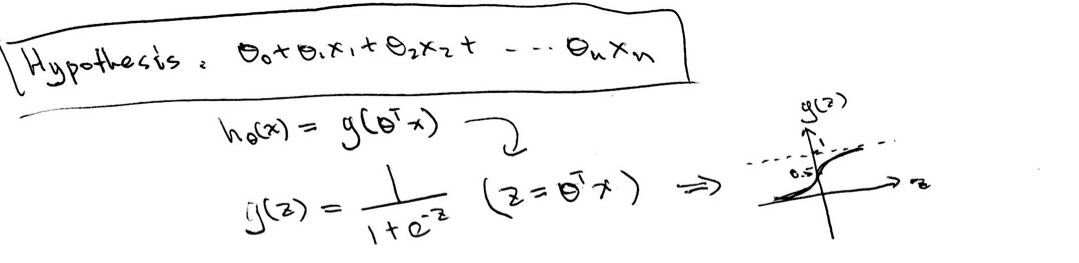 Hypothesis : θ₀ + θ₁x₁ + θ₂x₂ + ---- θₙxₙ
h_θ(x) = g(θᵀx)
g(z) = 1/(1+e^-z) (z = θᵀx) ⇒
g(z)
1
0.5
z